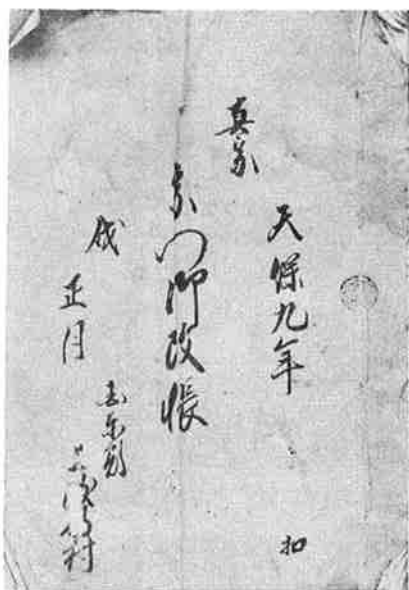 天保九年
扣
真宗
宗門御改帳
戌
正月
村